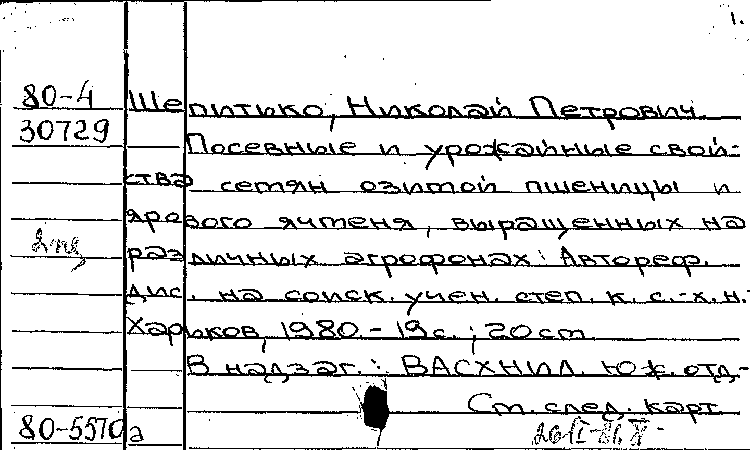 1.
80-4 Шепитько, Николай Петрович.
30729 Посевные и урожайные свой-
ства семян озимой пшеницы и
ярового ячменя, выращенных на
различных агрофонах: Автореф.
дис. на соиск. учен. степ. к. с.-х. н.-
Харьков, 1980.- 19 с.; 20 cm
В надзаг.: ВАСХНИЛ. Юж. отд-
Ст. след. карт.
80-5570а